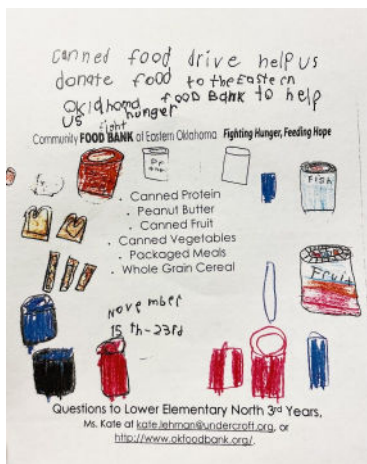 canned food drive help us
donate food to the Eastern
Oklahoma food Bank to help
us fight hunger
Community FOOD BANK of Eastern Oklahoma Fighting Hunger, Feeding Hope
Fish
. Canned Protein
. Peanut Butter
. Canned Fruit
. Canned Vegetables
. Packaged Meals
. Whole Grain Cereal
Fruit
November
15th-23rd
Questions to Lower Elementary North 3rd Years,
Ms. Kate at kate.lehman@undercroft.org, or
http://www.okfoodbank.org/.